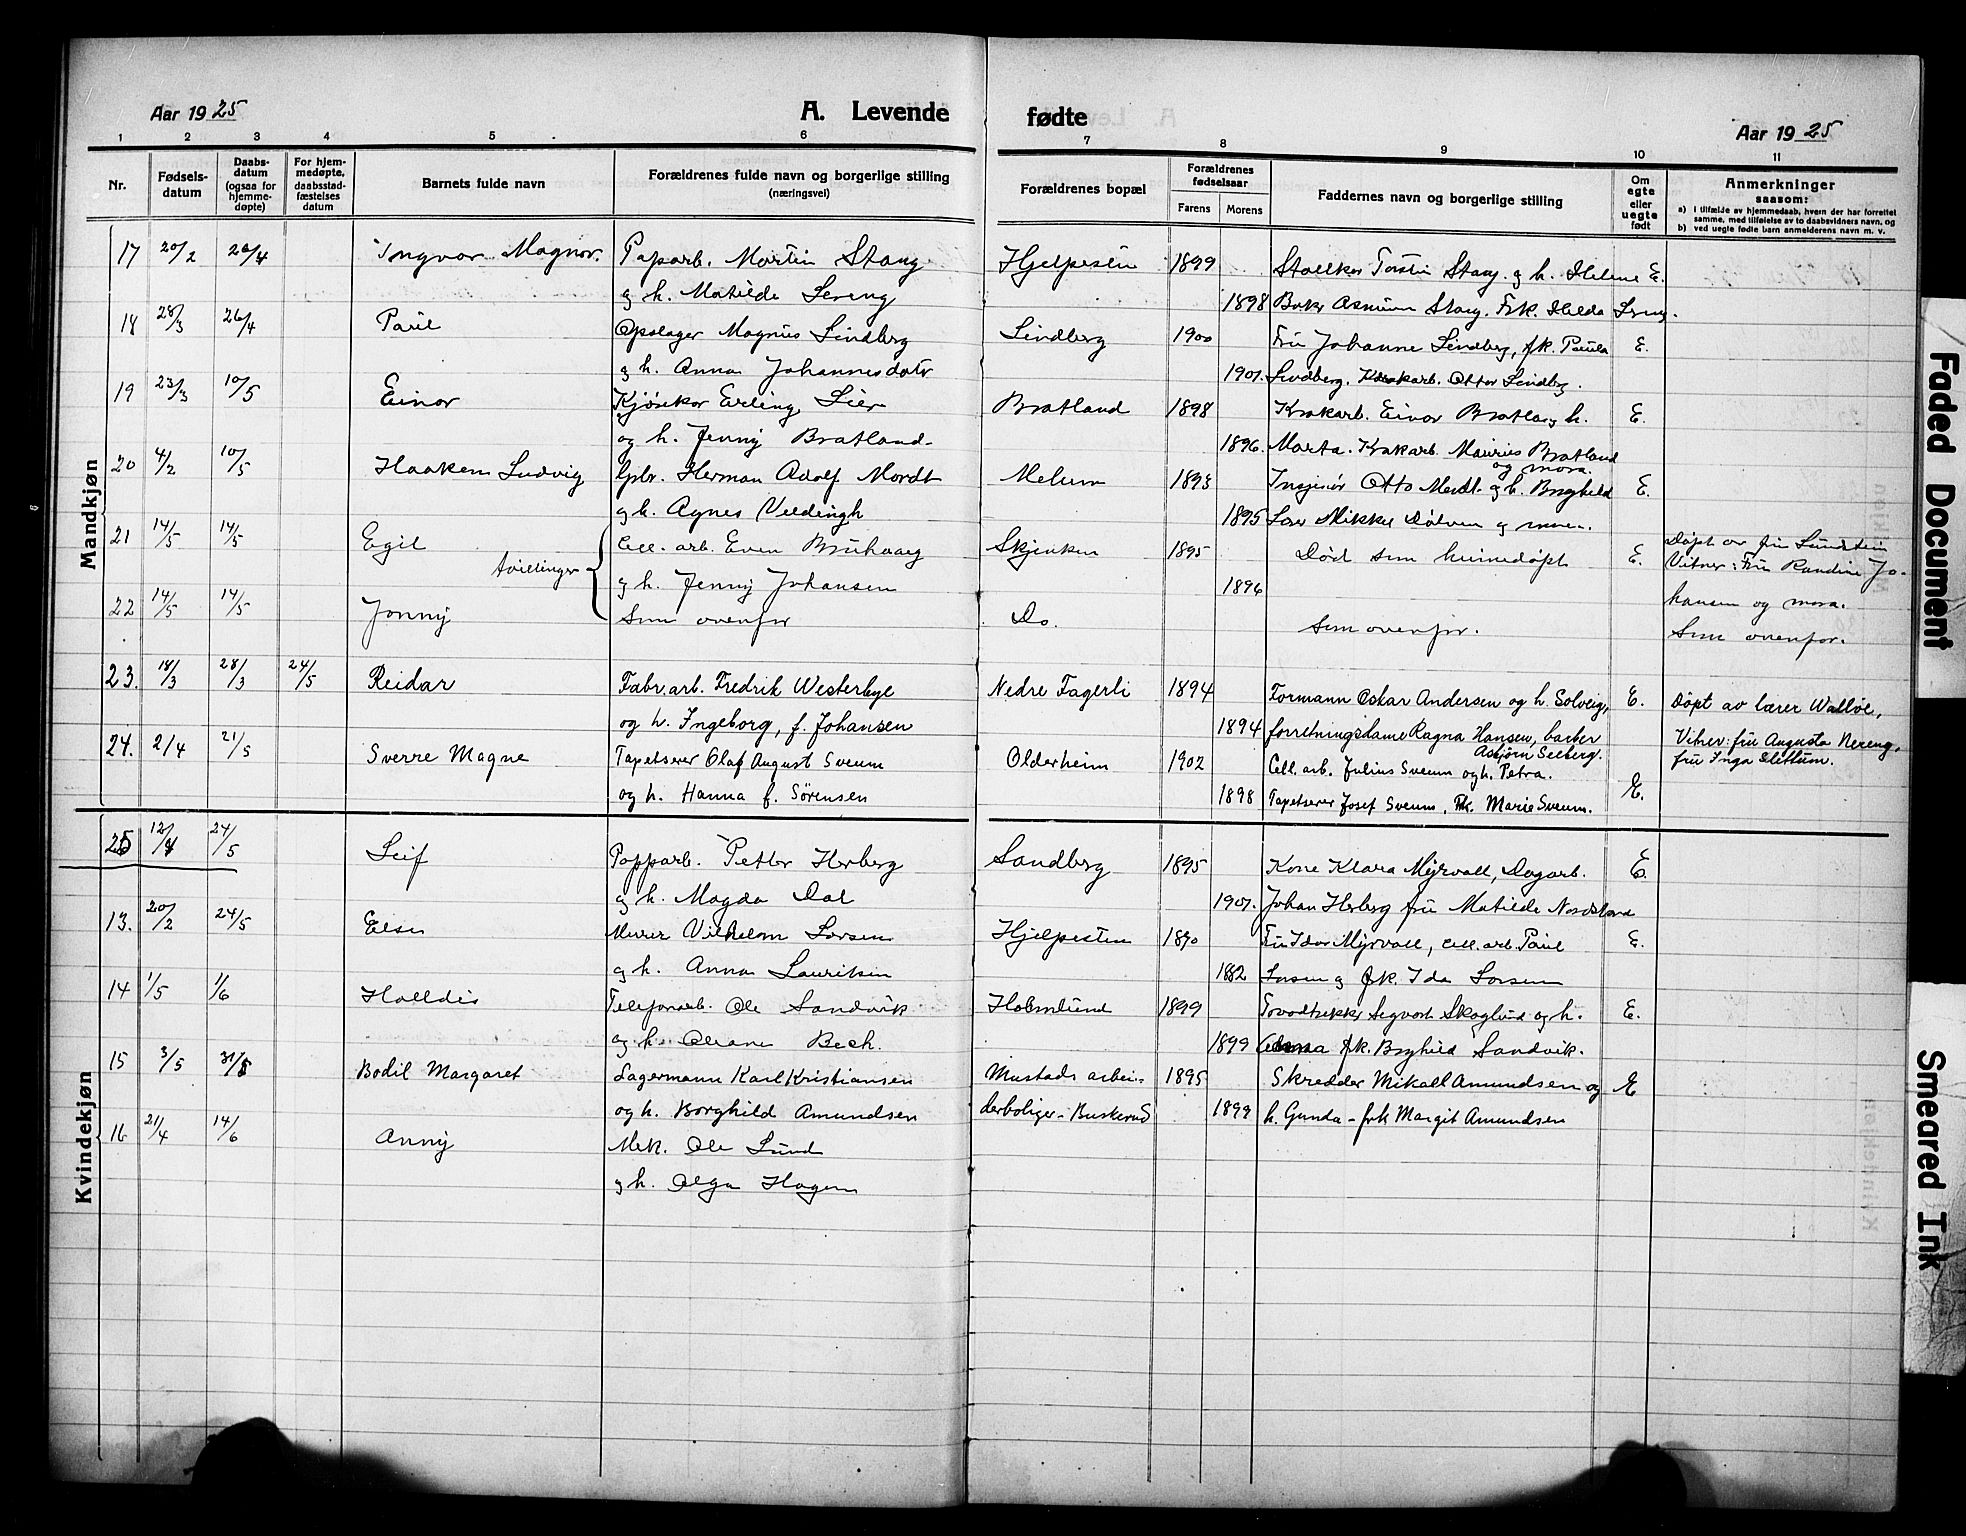 Aar 1925
A. Levende
fødte
Aar 1925
1 2 3 4 5 6 7 8 9 10 11
Nr.
Fødsels-
datum
Daabs-
datum
(ogsaa for
hjemme-
døpte)
For hjem-
medøpte,
daabsstad-
fæstelses
datum
Barnets fulde navn
Forældrenes fulde navn og borgerlige stilling
(næringsvei)
Forældrenes bopæl
Forældrenes
fødselsaar
Farens Morens
Faddernes navn og borgerlige stilling
Om
egte
eller
uegte
født
Anmerkninger
saasom:
a) I tilfælde av hjemmedaab, hvem der har forrettet
samme, med tilføielse av to daabsvidners navn, og
b) ved uegte fødte barn anmelderens navn m. v.
Mandkjøn
17 20/2 26/4 Ingvar Magnar. Paparb. Martin Stang Hjelpesten 1899 Torstein Stang. og h. Helene E.
og h. Matilde Sereng 1898 Asmund Stang. Frk. Hilda
18 28/3 26/4 Paul Opslager Magnus Lindberg Lindberg 1900 Fru Johanne Lindberg, frk. Paula E.
og h. Anna Johannesdatr 1901. Lindberg. Otter Lindberg.
19 23/3 10/5 Einar Kjøreker Erling Lier Bratland 1898 Krakarb. Einar Bratla og h. E.
og h. Jenny Bratland. 1896. Marta. Krakarb. Maurius Bratland
og mora.
20 4/2 10/5 Haakem Ludvig Gpbr. Herman Adolf Mordt Melum 1893 Ingeniør Otto Mordt. og h. Borghild E.
og h. Agnes Veldingh 1895 Mikkel Dølven og moren.
21 14/5 14/5 Egil Cell. arb. Even Bruhaug Skjenken 1895 Død som heimedøpt E. Døpt av fru Sundstein
tvillinger og h. Jenny Johansen 1896 Vitner: Fru Randine Jo-
22 14/5 14/5 Jonny Som ovenfor Do. Som ovenfor. hansen og mora.
Som ovenfor.
23. 18/3 28/3 24/5 Reidar Fabr. arb. Fredrik Westerbye Nedre Fagerli 1894 Formann Oskar Andersen og h. Solveig, E. Døpt av lærer Walløe,
og h. Ingeborg, f. Johansen 1894 forretningsdame Ragna Hansen, barber Vitner: fru Augusta Nereng,
Asbjørn Seeberg. fru Inga Slettum.
24. 2/4 21/5 Sverre Magne Tapetserer Olaf August Sveum Olderheim 1902 Cell. arb. Julius Sveum og h. Petra.
og h. Hanna f. Sørensen 1898 Tapetserer Josef Sveum, Frk. Marie Sveum. E.
25 12/4 24/5 Leif Papparb. Petter Herberg Sandberg 1895 Kone Klara Myrvall, Dagarb. E.
og h. Magda Dal 1901. Johan Herberg fru Matilde Nordstrand
Kvindekjøn
13. 20/2 24/5 Else Murer Vilhelm Larsen Hjelpesten 1890 Fru Ida Myrvall, cell. arb. Paul E.
og h. Anna Lauritsen 1882 Larsen og frk. Ida Larsen
14 1/5 1/6 Halldis Telefonarb. Ole Sandvik Holmlund 1899 Sigvart Skoglund og h. E.
og h. Oleane Bech. 1899 frk. Borghild Sandvik.
15 3/5 31/5 Bodil Margaret Lagermann Karl Kristiansen Mustads arbei- 1895 Skredder Mikael Amundsen og E
og h. Borghild Amundsen derboliger - Buskerud 1899 h. Gunda - frk Margit Amundsen
16 21/4 14/6 Anny Mek. Ole Lund
og h. Olga Hagen
Faded Document
Smeared Ink